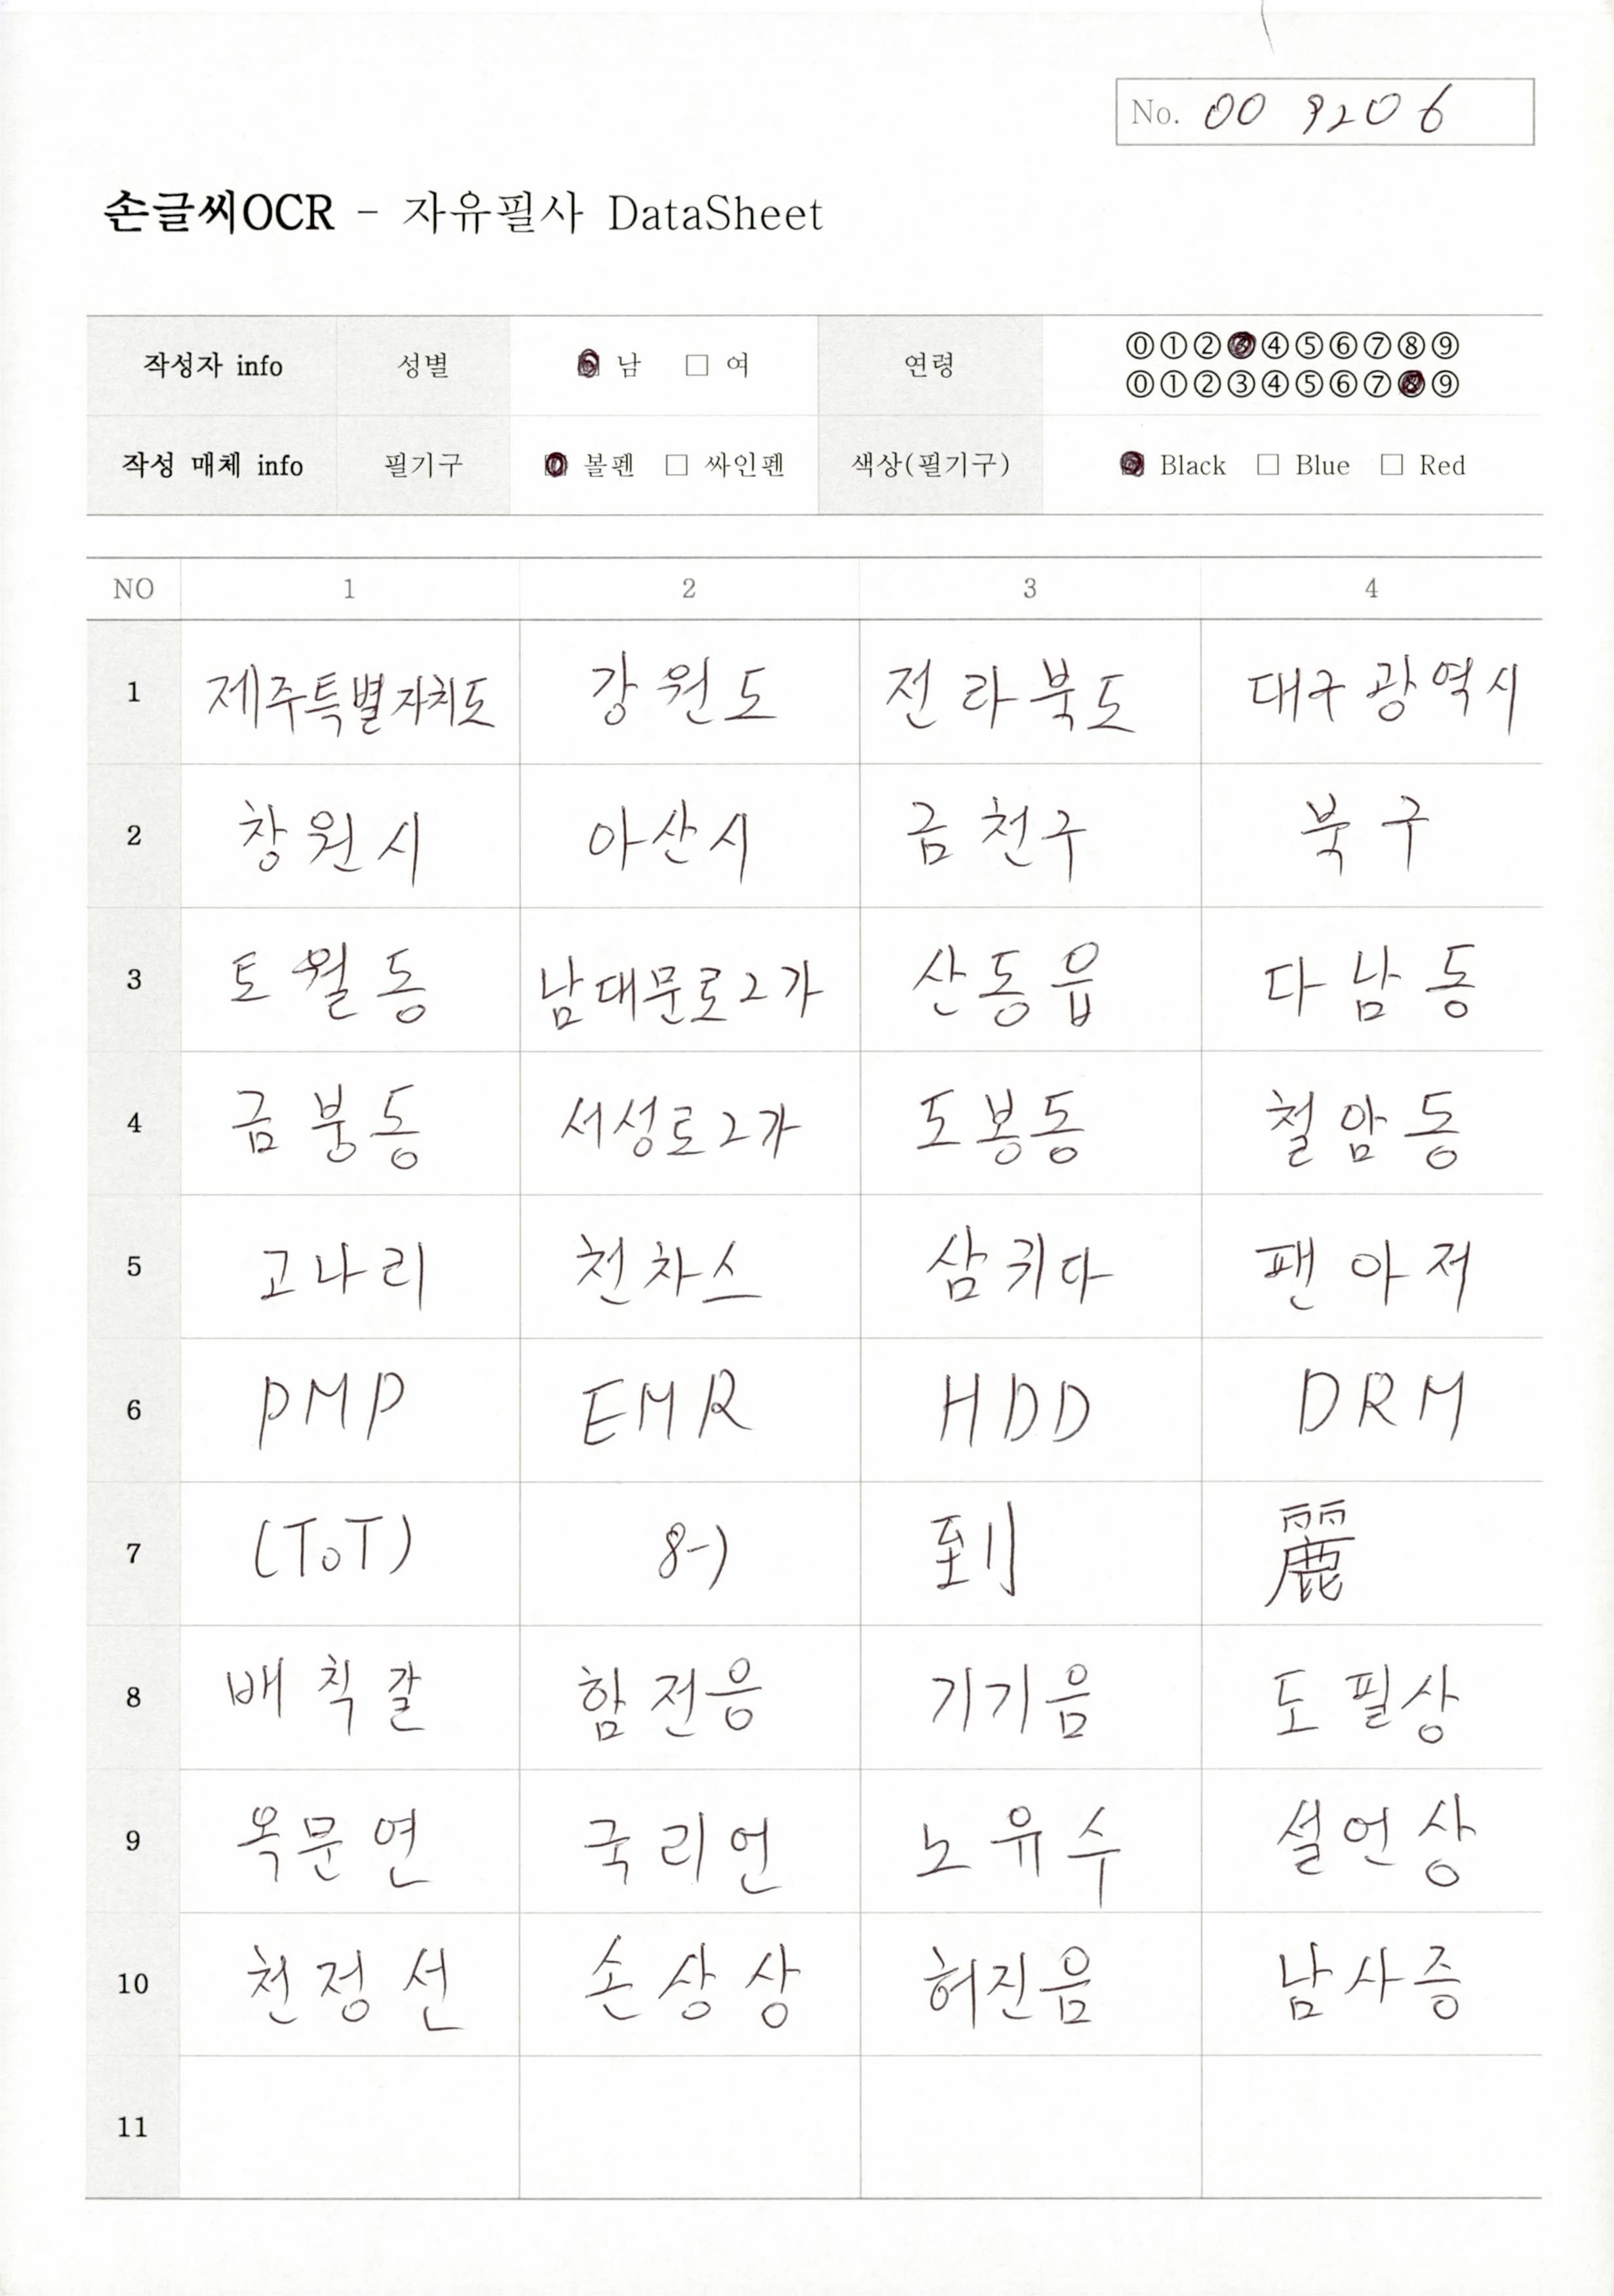 No. 009206
손글씨OCR - 자유필사 DataSheet
작성자 info 성별 남 □ 여 연령 ⓪①②③④⑤⑥⑦⑧⑨
⓪①②③④⑤⑥⑦⑧⑨
작성 매체 info 필기구 볼펜 □ 싸인펜 색상(필기구) Black □ Blue □ Red
NO 1 2 3 4
1 제주특별자치도 강원도 전라북도 대구광역시
2 창원시 아산시 금천구 북구
3 토월동 남대문로2가 산동읍 다남동
4 금붕동 서성로2가 도봉동 철암동
5 고나리 천차스 삼키다 팬아저
6 PMP EMR HDD DRM
7 (ToT) 8-) 到 麗
8 배칙갈 함전응 기기음 도필상
9 옥문연 국리언 노유수 설언상
10 천정선 손상상 허진음 남사증
11